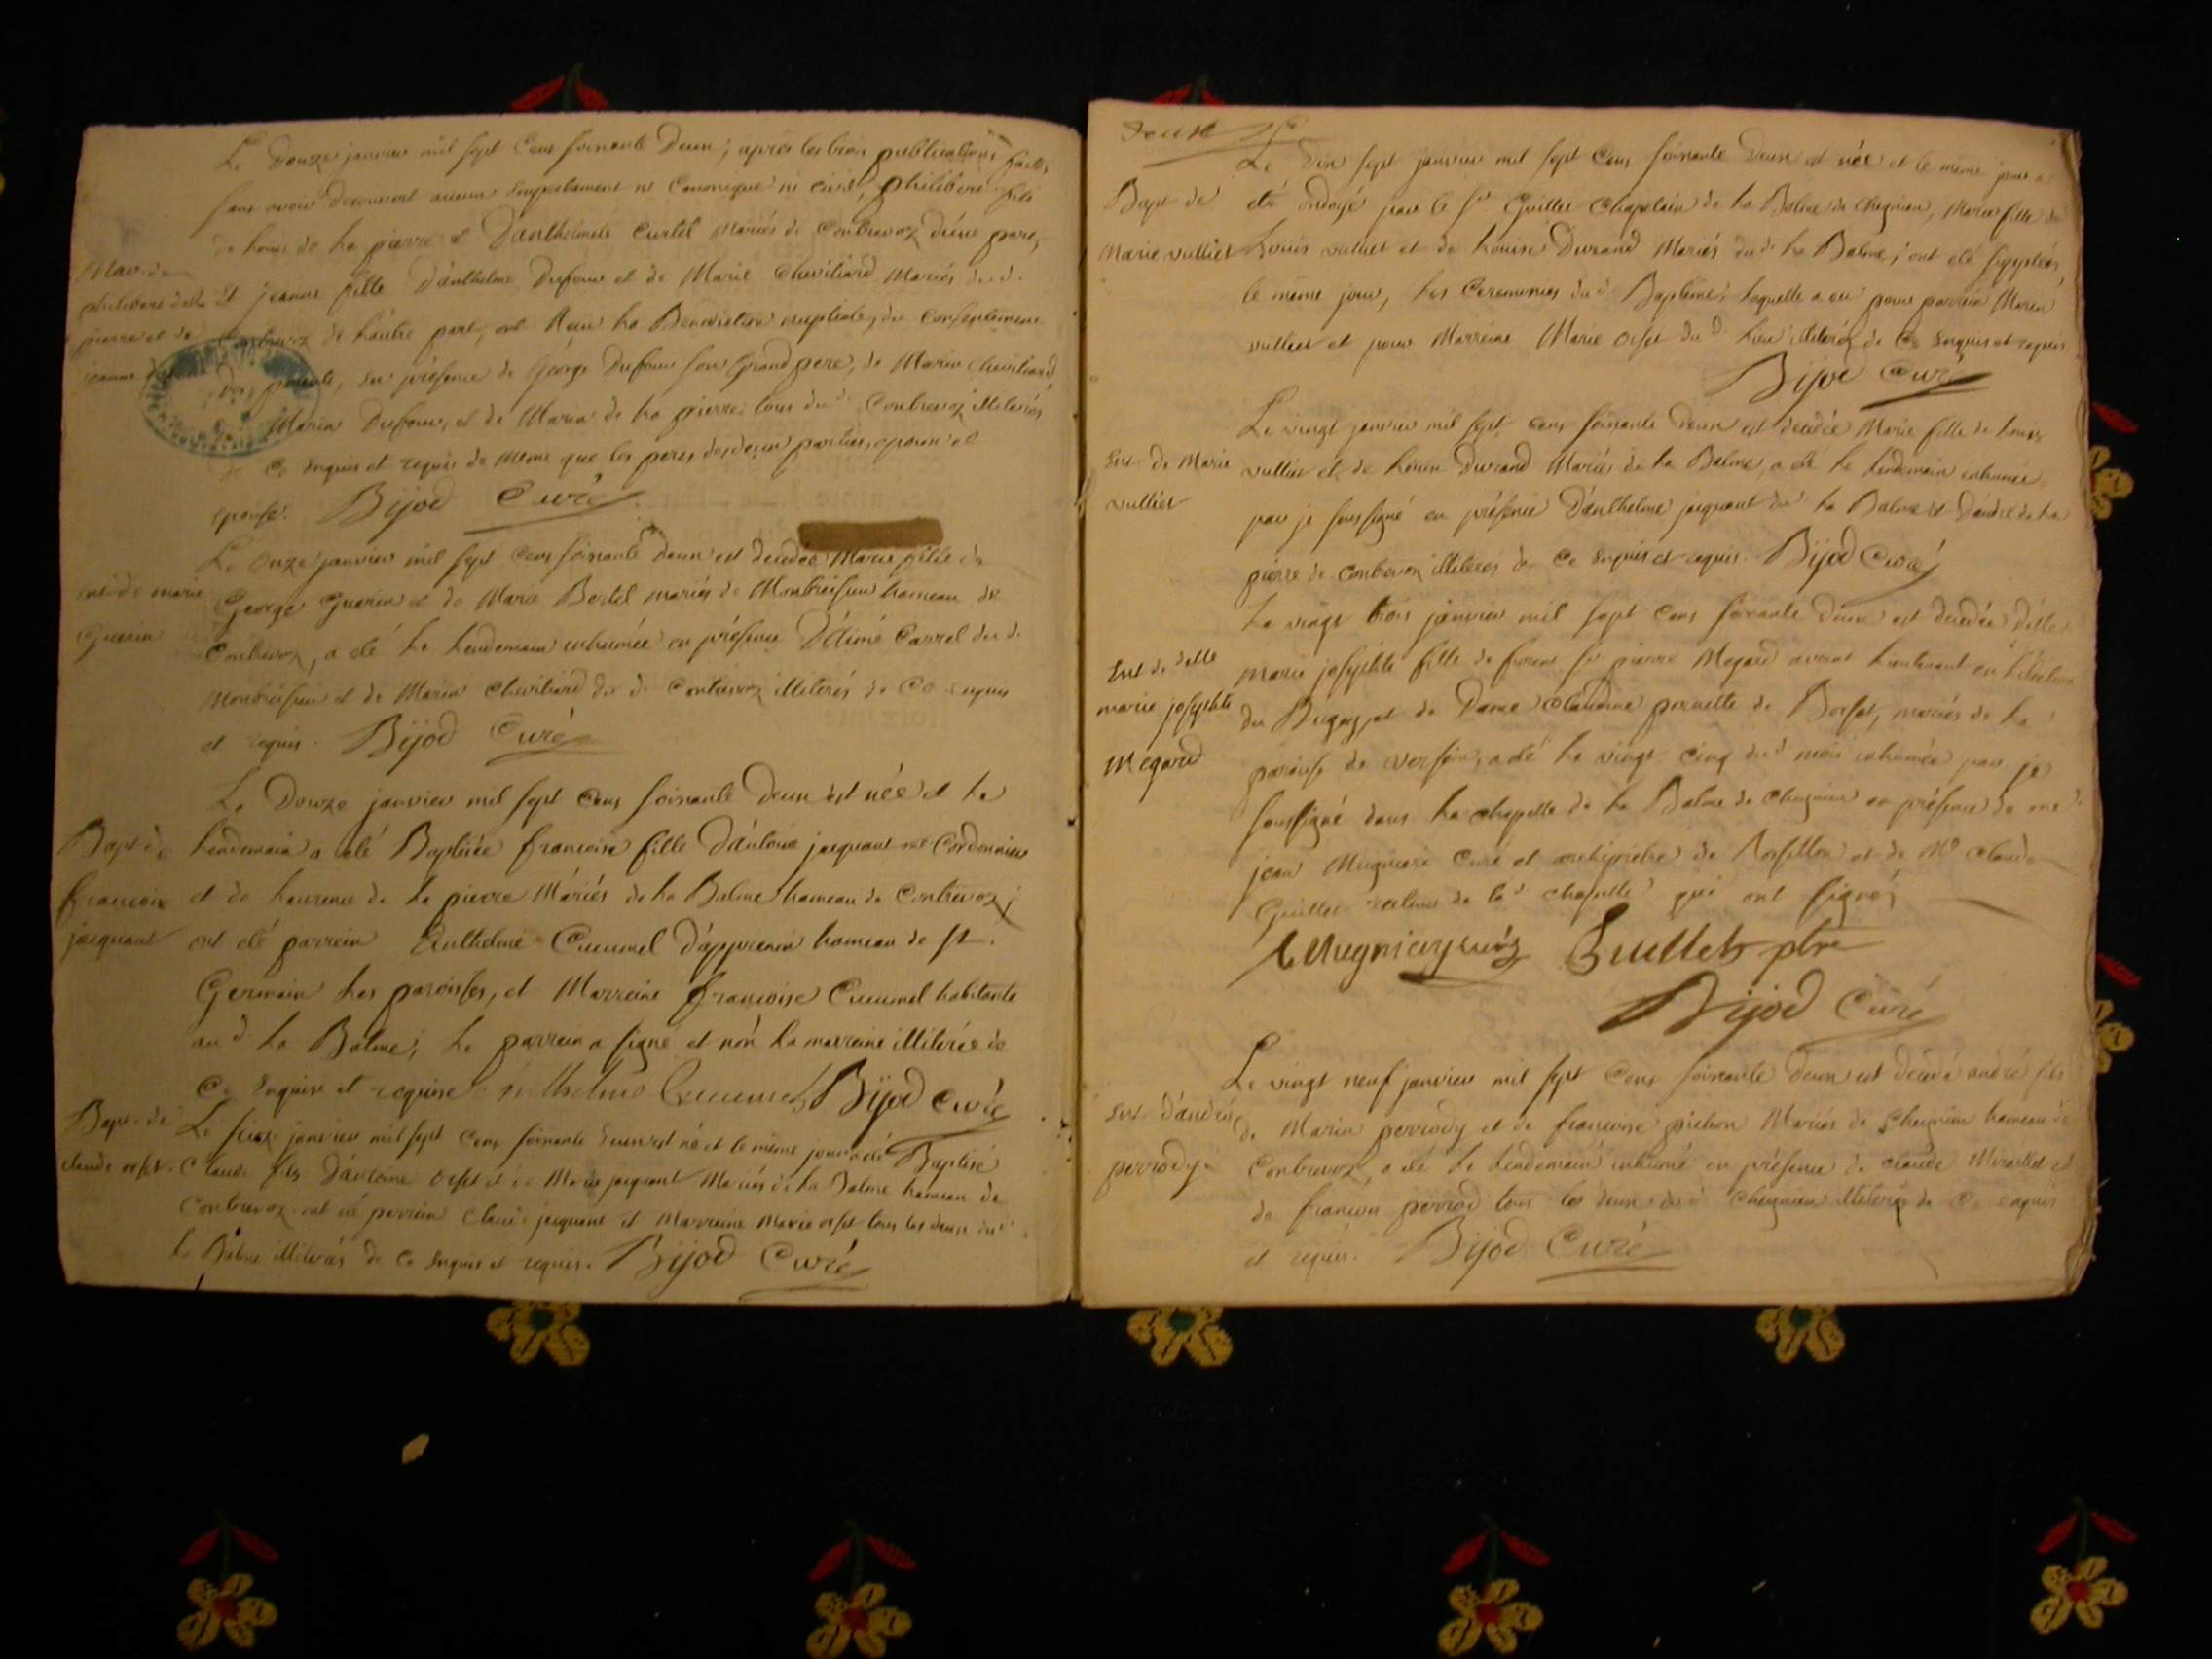 Le Douze janvier mil sept Cens soixante Deux; après les trois publications faittes
sans avoir decouvert aucun Empechement ni Canonique ni civil, philibert fils
de Louis de La pierre et D'anthelmete Curtel Mariés de Contrevoz d'une part,
Mar. de
philibert dela Et jeanne fille D'anthelme Dufour et de Marie Cheviliard Mariés du d.
pierre et de Contrevoz de L'autre part, ont Recu La Benediction nuptiale, du Consentement
jeanne parents, en présence de George Dufour son Grand pere, de Marin Cheviliard
Marin Dufour, et de Marin de La pierre tous du d. Contrevoz illiterés
de Ce Enquis et requis de Meme que les peres des deux parties, epoux et
Epouse. Bijod Curé
Le Onze janvier mil sept Cens soixante deux est decedée Marie fille de
Ent. de marie George Guerin et de Marie Bertel mariés de Montbreisieu hameau de
Guerin Contrevoz, a été Le Lendemain inhumée en présence D'Aimé Carrel du d.
et de Marin Cheviliard du d. Contrevoz illiterés de Ce enquis
et requis. Bijod Curé
Le Douze janvier mil sept Cens soixante Deux est née et Le
Bapt. de Lendemain a été Baptisée francoise fille D'antoine jacquant Cordonnier
francoise et de Laurence de La pierre Mariés de La Balme hameau de Contrevoz;
jacquant ont été parrein Anthelme Cucumel d'appregnin hameau de st.
Germain Les paroisses, et Marreine francoise Cucumel habitante
au d. La Balme; Le parrein a signé et non La marreine illiterée de
Ce Enquise et requise anthelme Cucumel Bijod Curé
Bapt. de Le seize janvier mil sept Cens soixante Deux est né et le même jour a été Baptisé
claude orset. Claude fils D'antoine orset et de Marie jacquant Mariés de La Balme hameau de
Contrevoz ont été parrein Claude jacquant et Marreine Marie orset tous les deux du d.
La Balme illiterés de Ce Enquis et requis. Bijod Curé
Deux
Le Dix sept janvier mil sept Cens soixante Deux est née et le même jour a
Bapt. de été ondoyé par le sr. Guillet Chapelain de La Balme de Chegnieu, Marie fille de
Marie vulliet Louis vulliet et de Louise Durand Mariés du d. La Balme; ont été suppléés
le même jour, Les Ceremonies du d. Baptême, Laquelle a eu pour parrein Marin
vulliet et pour Marreine Marie Orset du d. Lieu illiterés de Ce Enquis et requis.
Bijod Curé
Le vingt janvier mil sept cens soixante deux est decedée Marie fille de Louis
Ent. de Marie vulliet et de Louise Durand Mariés de La Balme, a été Le Lendemain inhumée
vulliet par je soussigné en présence D'anthelme jacquant du d. La Balme et D'andré de La
pierre de Contrevoz illiterés de Ce Enquis et requis. Bijod Curé
Le vingt trois janvier mil sept cens soixante deux est decedée D'elle
Ent. de delle marie josephte fille de furent sr. pierre Megard vivant Lieutenant en L'élection
marie josephte du Bugey, et de Dame Claudine pernette de Borsat, mariés de La
Megard paroisse de, a été Le vingt Cinq du d. mois inhumée par je
soussigné dans La chapelle de La Balme de Chegnieu en présence de me.
jean Mugnier Curé et archiprêtre de Rossillon et de Mre Claude
Guillet recteur de la d. chapelle qui ont signés
Mugnier curé Guillet ptre
Bijod Curé
Le vingt neuf janvier mil sept Cens soixante Deux est décédé andré fils
Ent. d'andré de Marin perrody et de francoise pichon Mariés de Chegnieu hameau de
perrody. Contrevoz, a été Le Lendemain inhumé en présence de claude Miraillet et
de francois perrod tous les deux du d. Chegnieu illiterés de Ce enquis
et requis. Bijod Curé